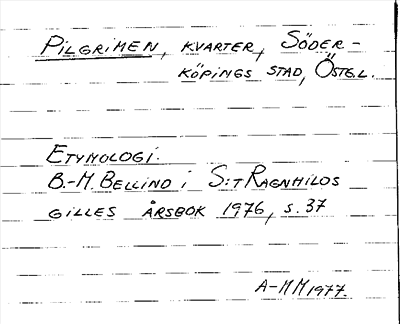 PILGRIMEN, KVARTER, SÖDER-
KÖPINGS STAD, ÖSTGL.
ETYMOLOGI.
B.-M. BELLIND i S:T RAGNHILDS
GILLES ÅRSBOK 1976, s. 37
A-MM 1977.